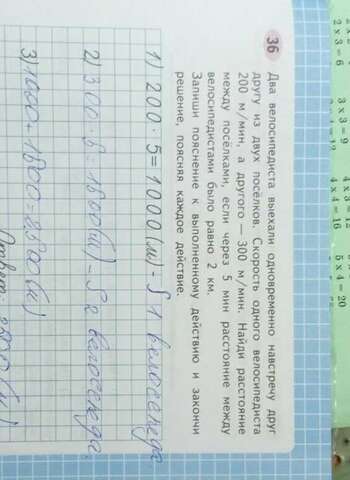 36
Два велосипедиста выехали одновременно навстречу друг
другу из двух посёлков. Скорость одного велосипедиста
200 м/мин, а другого — 300 м/мин. Найди расстояние
между посёлками, если через 5 мин расстояние между
велосипедистами было равно 2 км.
Запиши пояснение к выполненному действию и закончи
решение, поясняя каждое действие.
1) 200 · 5 = 1000 (м) - S 1 велосипеда
2) 300 · 5 = 1500 (м) - S 2 велосипеда.
3) 1000 + 1500 = 2500 (м)
Ответ: 2500 (м)
2 x 3 = 6
3 x 3 = 9
4 x 3 = 12
4 x 4 = 16
5 x 4 = 20